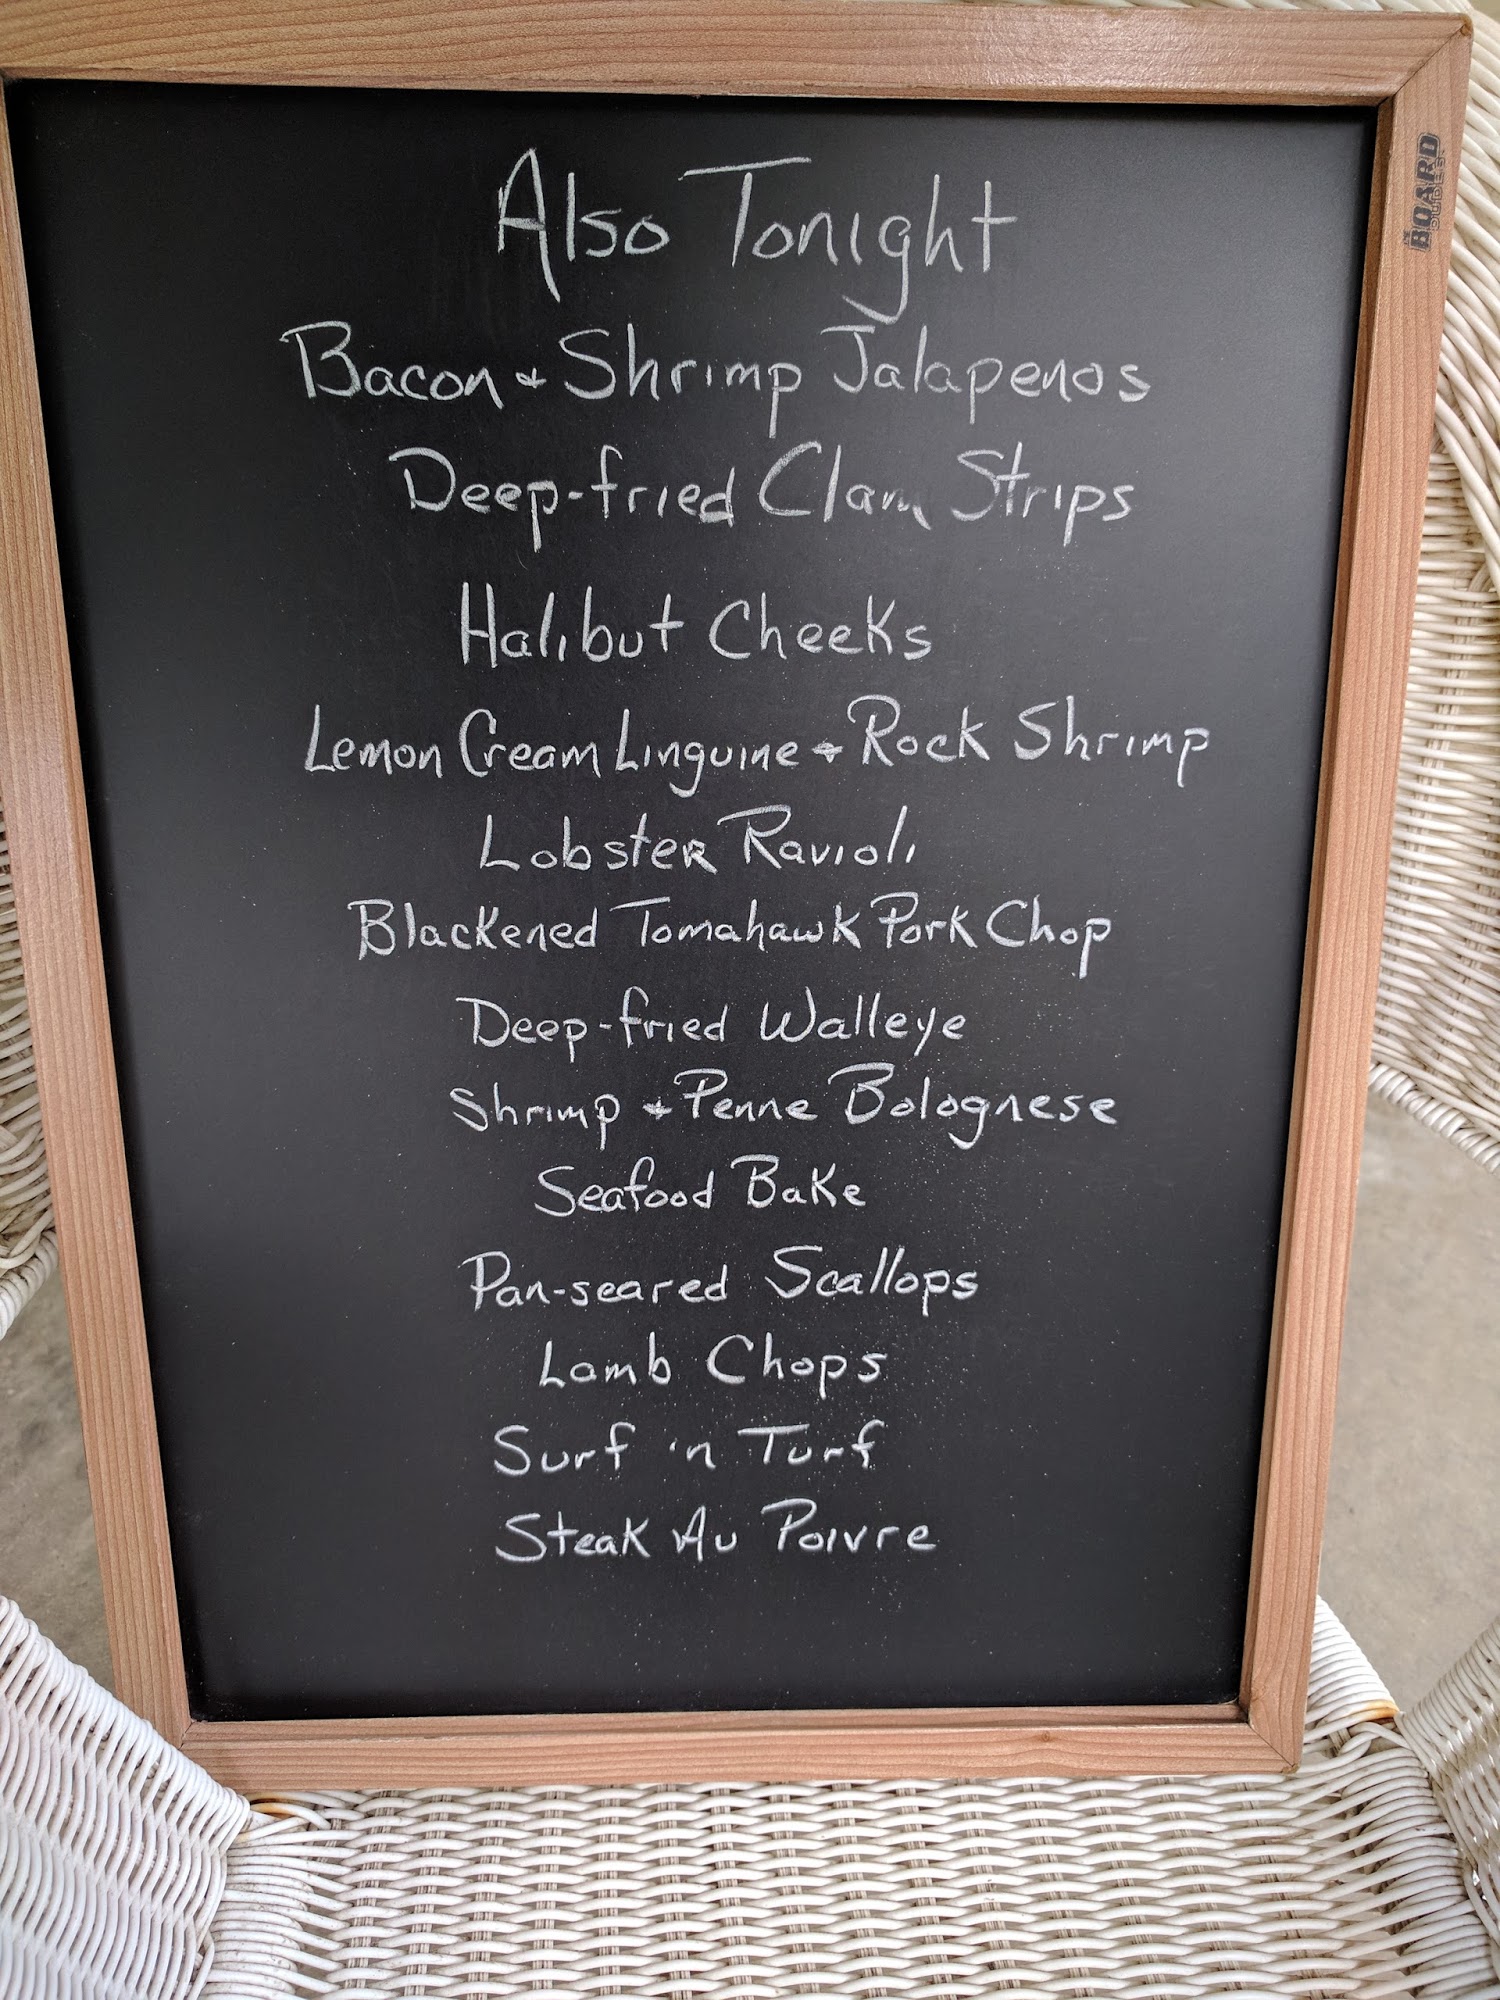 Also Tonight
Bacon & Shrimp Jalapenos
Deep-fried Clam Strips
Halibut Cheeks
Lemon Cream Linguine & Rock Shrimp
Lobster Ravioli
Blackened Tomahawk Pork Chop
Deep-fried Walleye
Shrimp & Penne Bolognese
Seafood Bake
Pan-seared Scallops
Lamb Chops
Surf 'n Turf
Steak Au Poivre
THE BOARD
DUDES